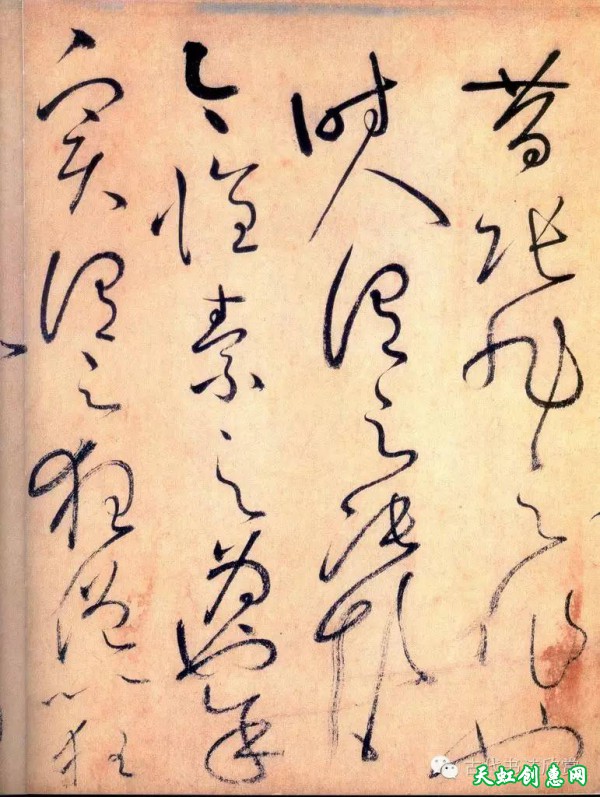 昔張旭之作也
時人謂之張顛
今懷素之為也余
實謂之狂僧以狂
古代书法欣赏
天虹创惠网